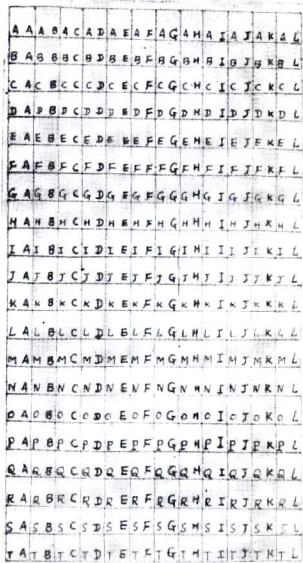 A A A B A C A D A E A F A G A H A I A J A K A L
B A B B B C B D B E B F B G B H B I B J B K B L
C A C B C C C D C E C F C G C H C I C J C K C L
D A D B D C D D D E D F D G D H D I D J D K D L
E A E B E C E D E E E F E G E H E I E J E K E L
F A F B F C F D F E F F F G F H F I F J F K F L
G A G B G C G D G E G F G G G H G I G J G K G L
H A H B H C H D H E H F H G H H H I H J H K H L
I A I B I C I D I E I F I G I H I I I J I K I L
J A J B J C J D J E J F J G J H J I J J J K J L
K A K B K C K D K E K F K G K H K I K J K K K L
L A L B L C L D L E L F L G L H L I L J L K L L
M A M B M C M D M E M F M G M H M I M J M K M L
N A N B N C N D N E N F N G N H N I N J N K N L
O A O B O C O D O E O F O G O H O I O J O K O L
P A P B P C P D P E P F P G P H P I P J P K P L
Q A Q B Q C Q D Q E Q F Q G Q H Q I Q J Q K Q L
R A R B R C R D R E R F R G R H R I R J R K R L
S A S B S C S D S E S F S G S H S I S J S K S L
T A T B T C T D T E T F T G T H T I T J T K T L